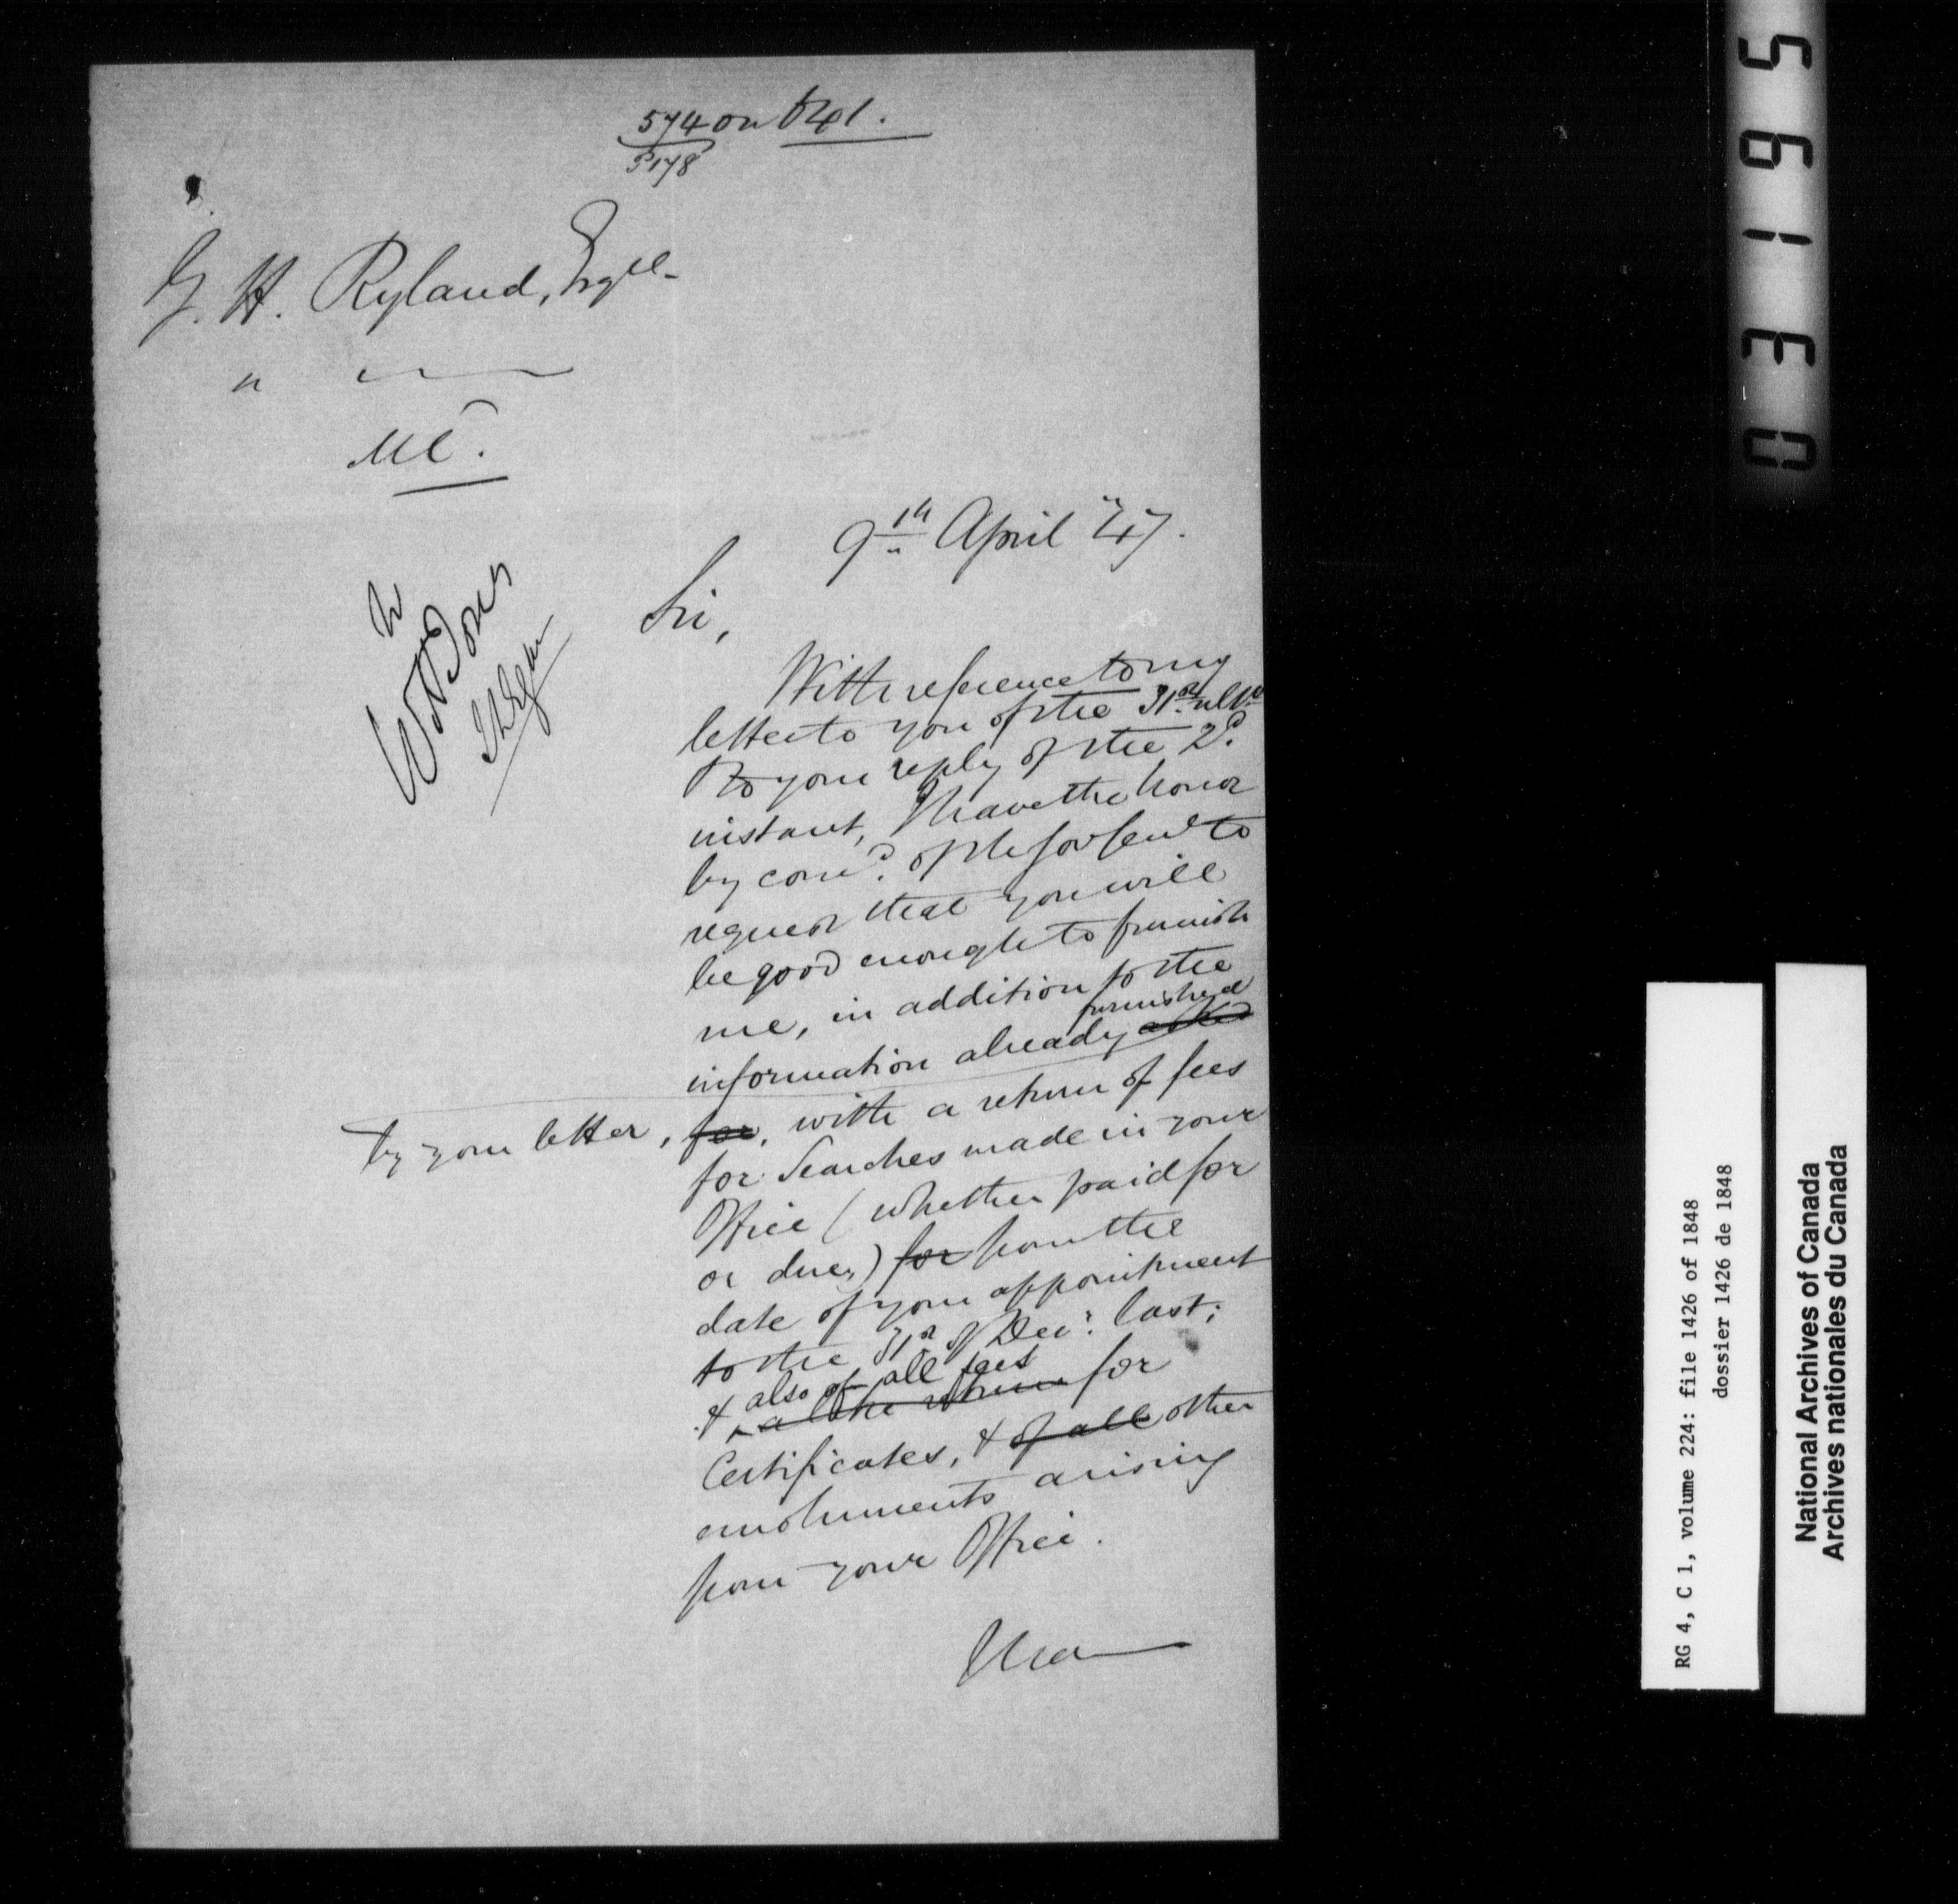 574 on 841.
5178
G. H. Ryland, Esqre.
" "
Ml.
9th April '47.
Sir,
With reference to my
letter to you of the 31st ulto.
& to your reply of the 2d.
instant, I have the honor
by comd. of the Gov Genl to
request that you will
be good enough to furnish
me, in addition to the
furnished
information already asked
by your letter, for, with a return of fees
for Searches made in your
Office (whether paid for
or due,) for from the
date of your appointment
to the 31st of Decr. last;
also of all fees
& a like return for
Certificates, & of all other
emoluments arising
from your Office.
I have
03195
RG 4, C 1, volume 224: file 1426 of 1848
dossier 1426 de 1848
National Archives of Canada
Archives nationales du Canada